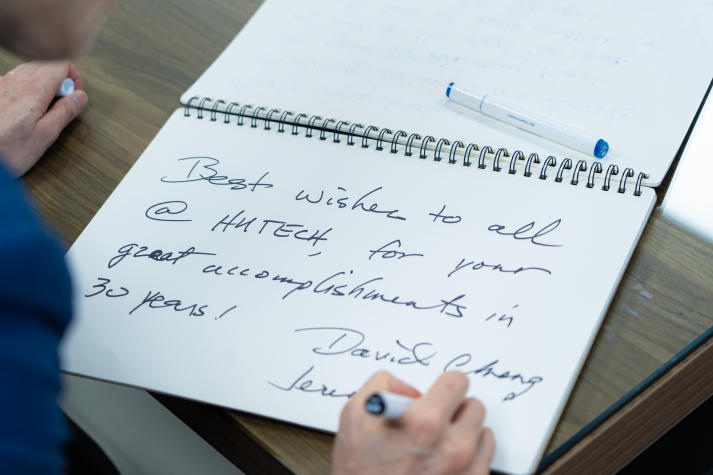 Best wishes to all
@ HUTECH, for your
great accomplishments in
30 years!
David Cheng